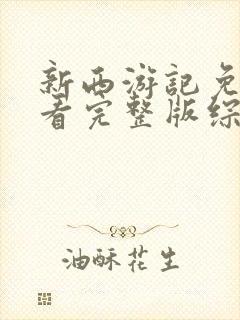 新西游记免
看完整版综
油酥花生